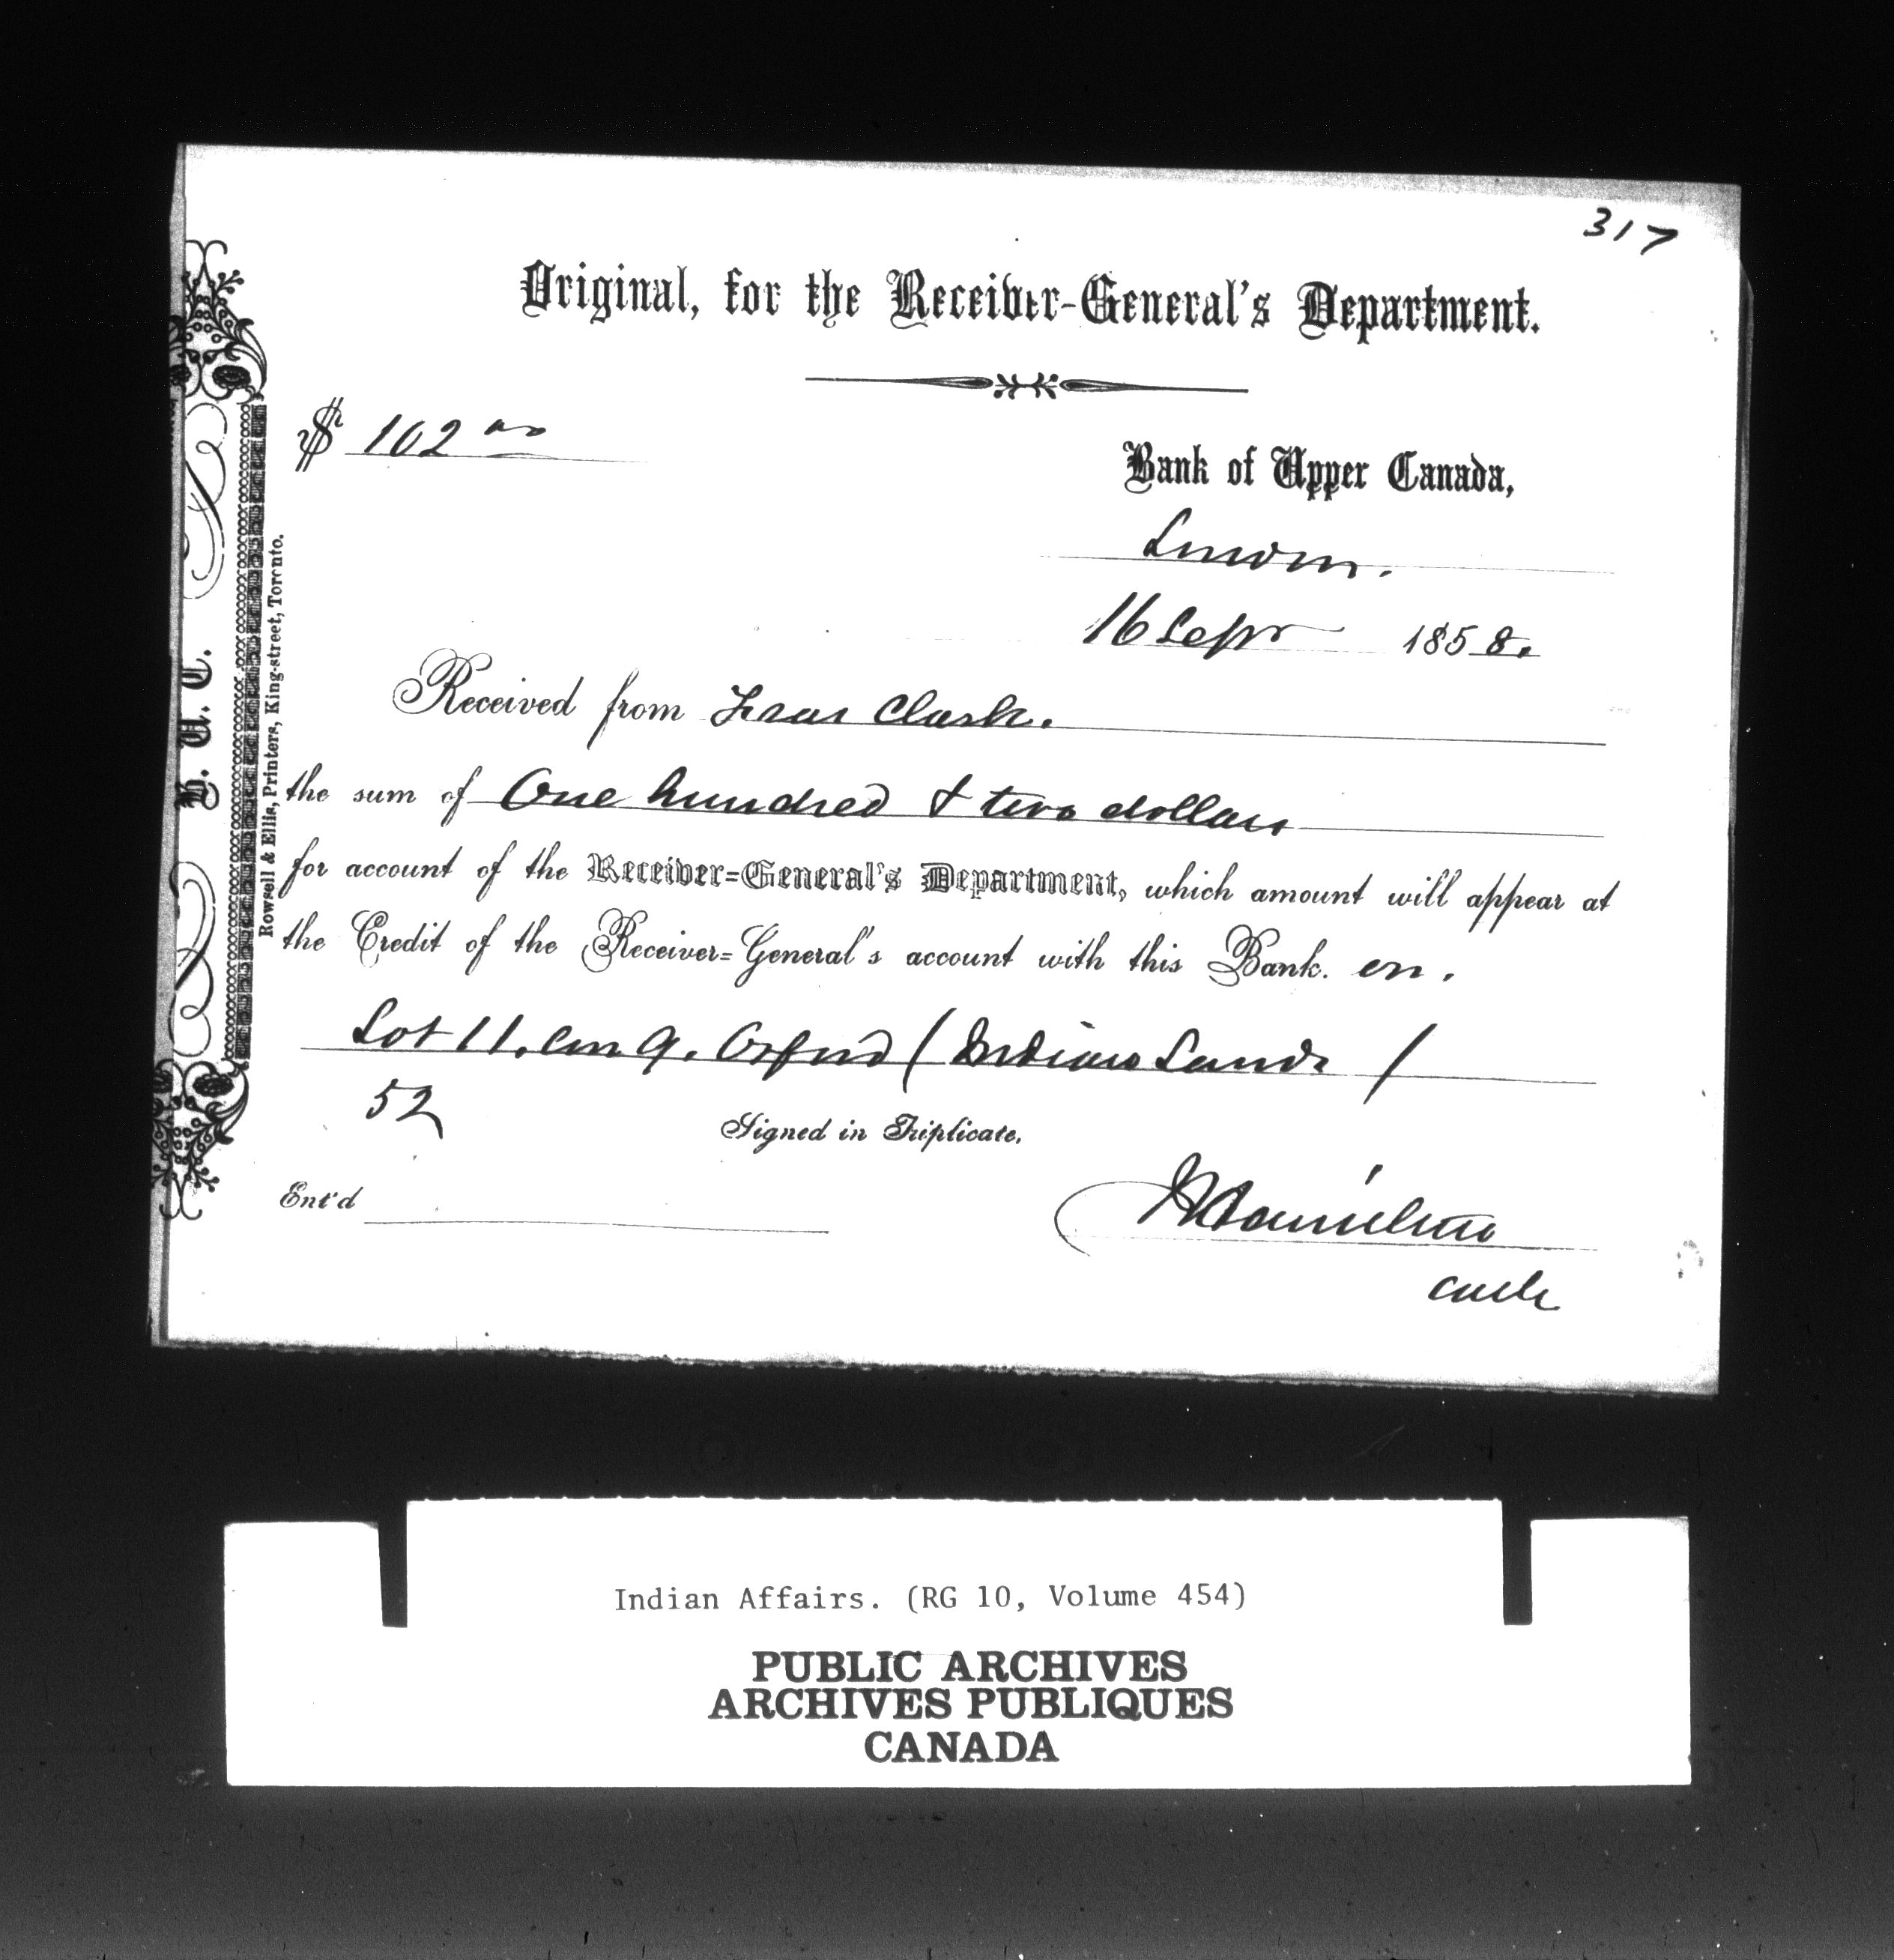 317
Original, for the Receiver-General's Department.
$ 102 00
Bank of Upper Canada,
London.
16 Sepr 1858.
Received from Isaac Clark.
the sum of One hundred & two dollars
for account of the Receiver-General's Department, which amount will appear at
the Credit of the Receiver-General's account with this Bank. on.
Lot 11. con 9. Orford (Indian Lands)
52
Signed in Triplicate.
Ent'd
B. U. C.
Rowsell & Ellis, Printers, King-street, Toronto.
Indian Affairs. (RG 10, Volume 454)
PUBLIC ARCHIVES
ARCHIVES PUBLIQUES
CANADA